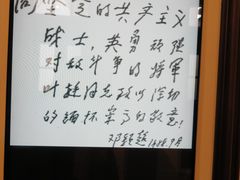 向坚定的共产主义
战士,英勇顽强
对敌斗争的将军
叶挺同志致以深切
的缅怀崇高的敬意!
邓颖超 1988.9月